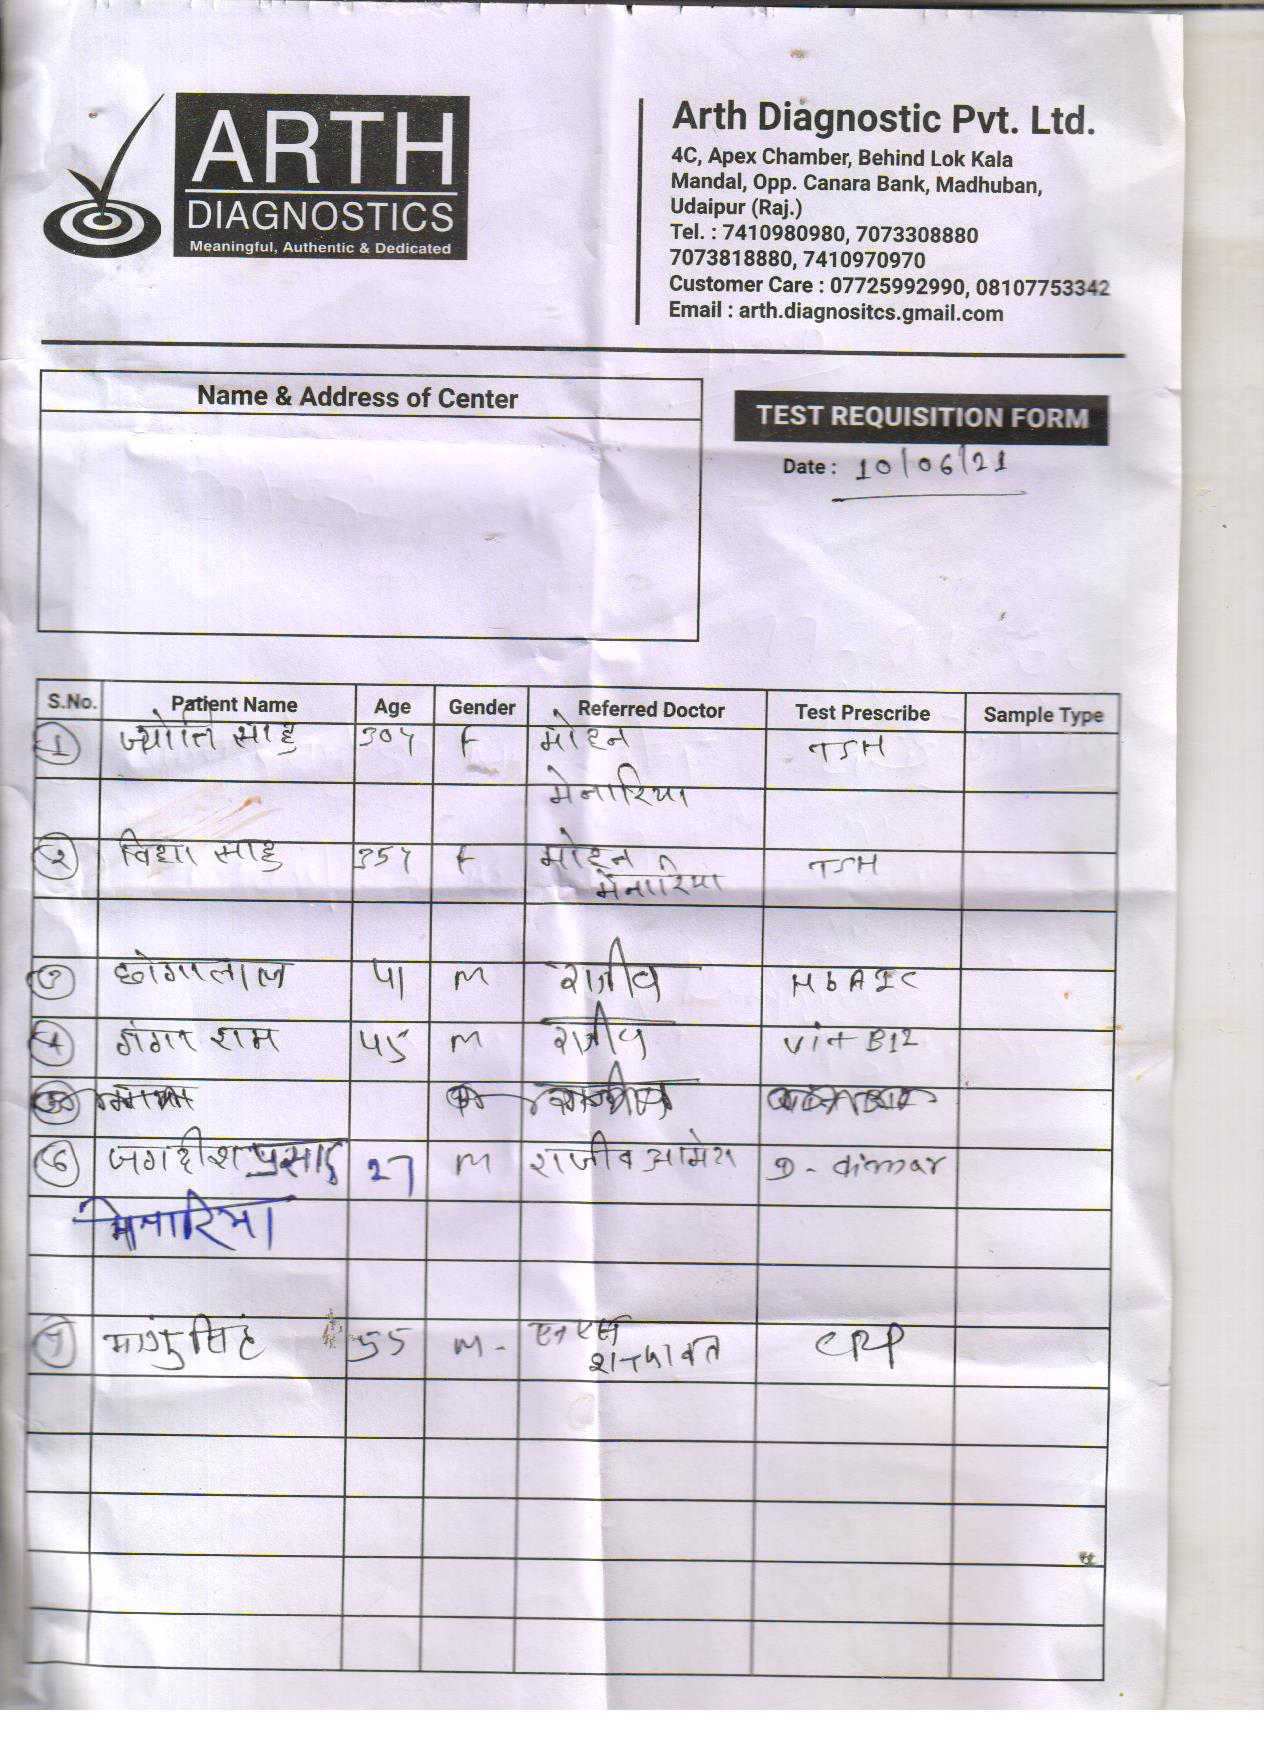 ARTH
DIAGNOSTICS
Meaningful, Authentic & Dedicated
Arth Diagnostic Pvt. Ltd.
4C, Apex Chamber, Behind Lok Kala
Mandal, Opp. Canara Bank, Madhuban,
Udaipur (Raj.)
Tel. : 7410980980, 7073308880
7073818880, 7410970970
Customer Care : 07725992990, 08107753342
Email : arth.diagnositcs.gmail.com
Name & Address of Center
TEST REQUISITION FORM
Date : 10/06/21
S.No. Patient Name Age Gender Referred Doctor Test Prescribe Sample Type
1 ज्योति साहु 30y F मोहन TSH
मेनारिया
2 विद्या साहु 35y F मोहन TSH
मेनारिया
3 छोगालाल 51 M राजीव HbA1C
4 गंगा राम 45 M राजीव vit B12
6 जगदीश प्रसाद 27 M राजीव आमेरा D-dimar
मेनारिया
7 सिंह 55 M. एन एस CRP
शक्तावत